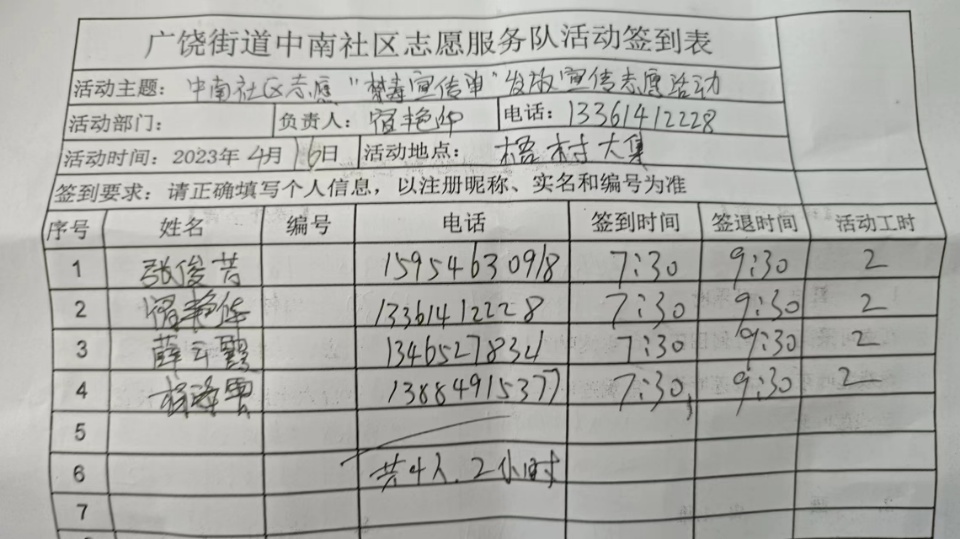 广饶街道中南社区志愿服务队活动签到表
活动主题: 中南社区志愿“禁毒宣传单”发放宣传志愿活动
活动部门: 负责人: 宿艳华 电话: 13361412228
活动时间: 2023年4月16日 活动地点: 梧村大集
签到要求: 请正确填写个人信息，以注册昵称、实名和编号为准
序号 姓名 编号 电话 签到时间 签退时间 活动工时
1 张俊芳 15954630918 7:30 9:30 2
2 宿艳华 13361412228 7:30 9:30 2
3 薛云霞 13465278321 7:30 9:30 2
4 13884915377 7:30 9:30 2
5
6 共4人、2小时
7